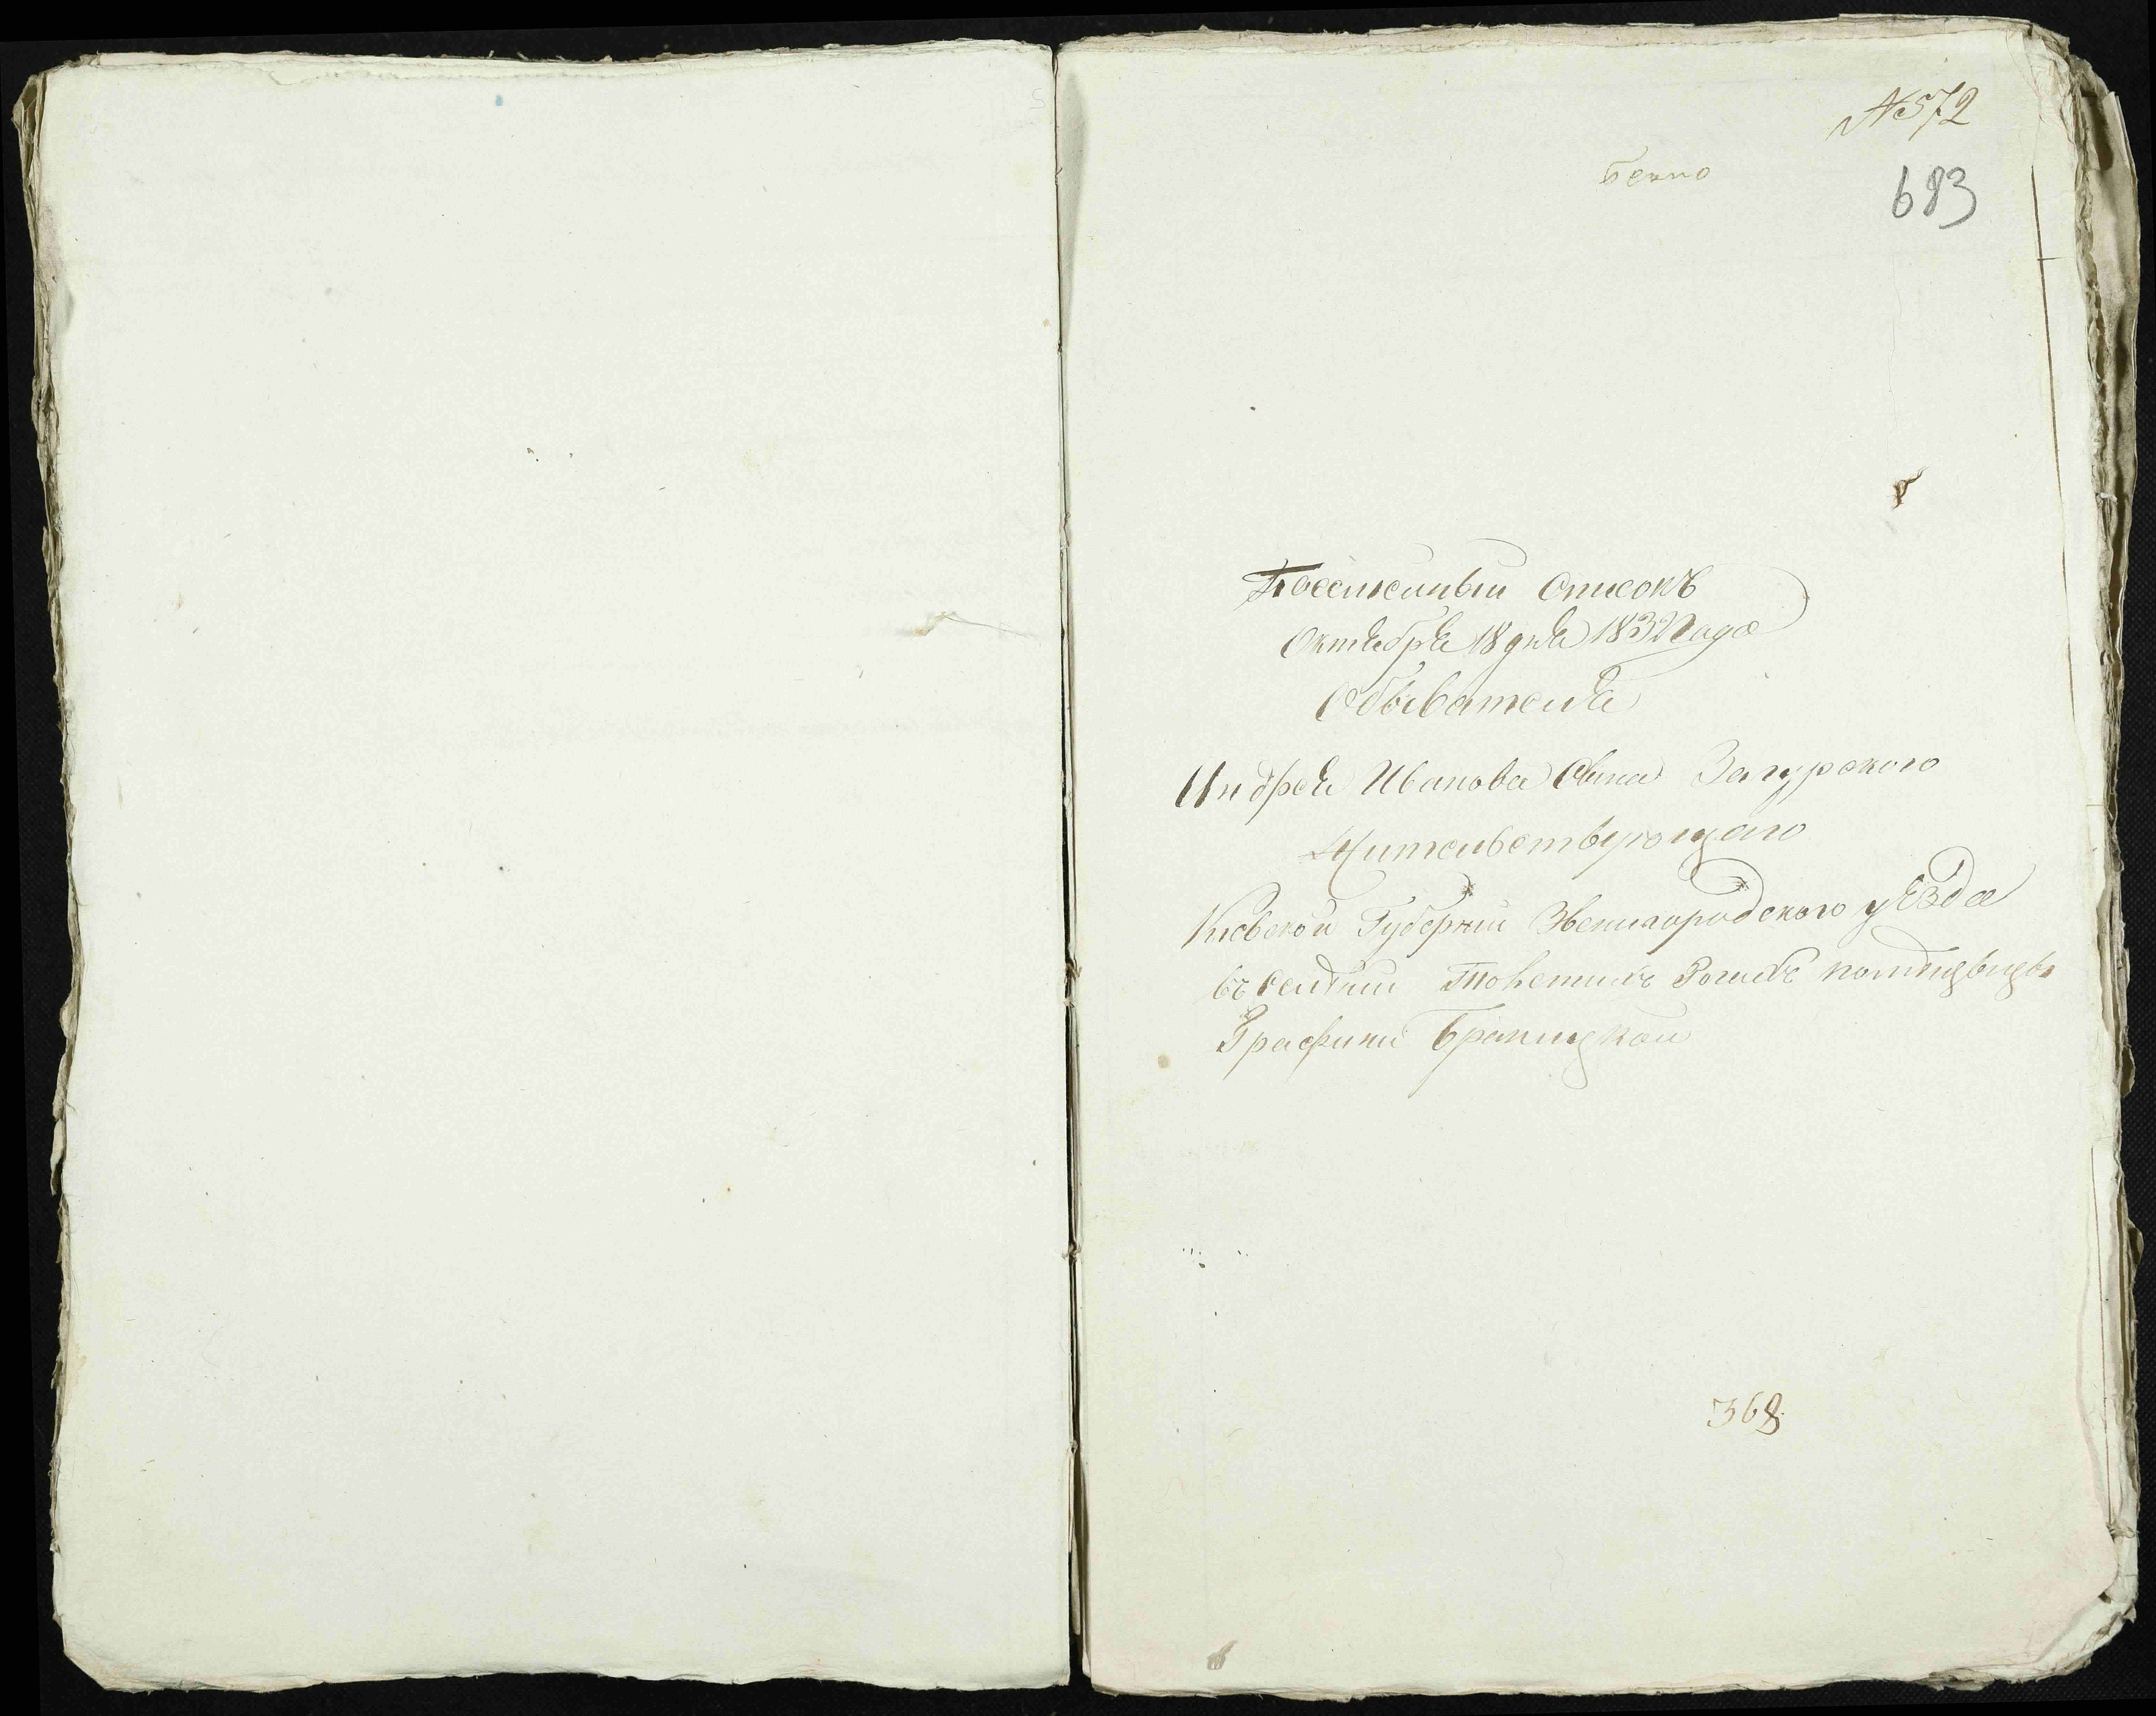 № 572
683
Посемейный Списокъ
Октября 18 дня 1832 года
Обывателя
Андрея Иванова Сына Загурского
Жительствующаго
Киевской Губернии Звенигородского уѣзда
въ селѣнии Рогахъ помѣщыцы
Графини Браницкой
368